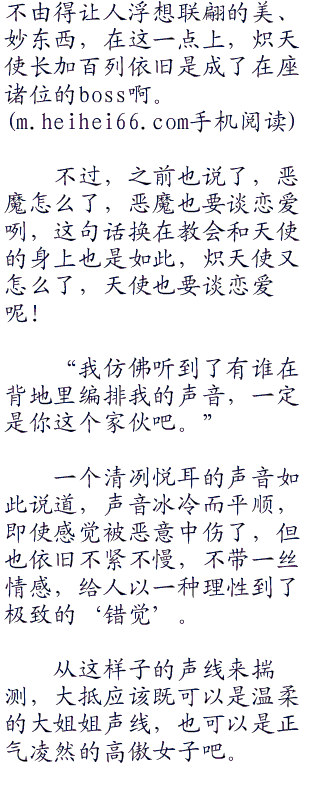 不由得让人浮想联翩的美、
妙东西，在这一点上，炽天
使长加百列依旧是成了在座
诸位的boss啊。
(m.heihei66.com手机阅读)
不过，之前也说了，恶
魔怎么了，恶魔也要谈恋爱
咧，这句话换在教会和天使
的身上也是如此，炽天使又
怎么了，天使也要谈恋爱
呢！
“我仿佛听到了有谁在
背地里编排我的声音，一定
是你这个家伙吧。”
一个清冽悦耳的声音如
此说道，声音冰冷而平顺，
即使感觉被恶意中伤了，但
也依旧不紧不慢，不带一丝
情感，给人以一种理性到了
极致的‘错觉’。
从这样子的声线来揣
测，大抵应该既可以是温柔
的大姐姐声线，也可以是正
气凌然的高傲女子吧。